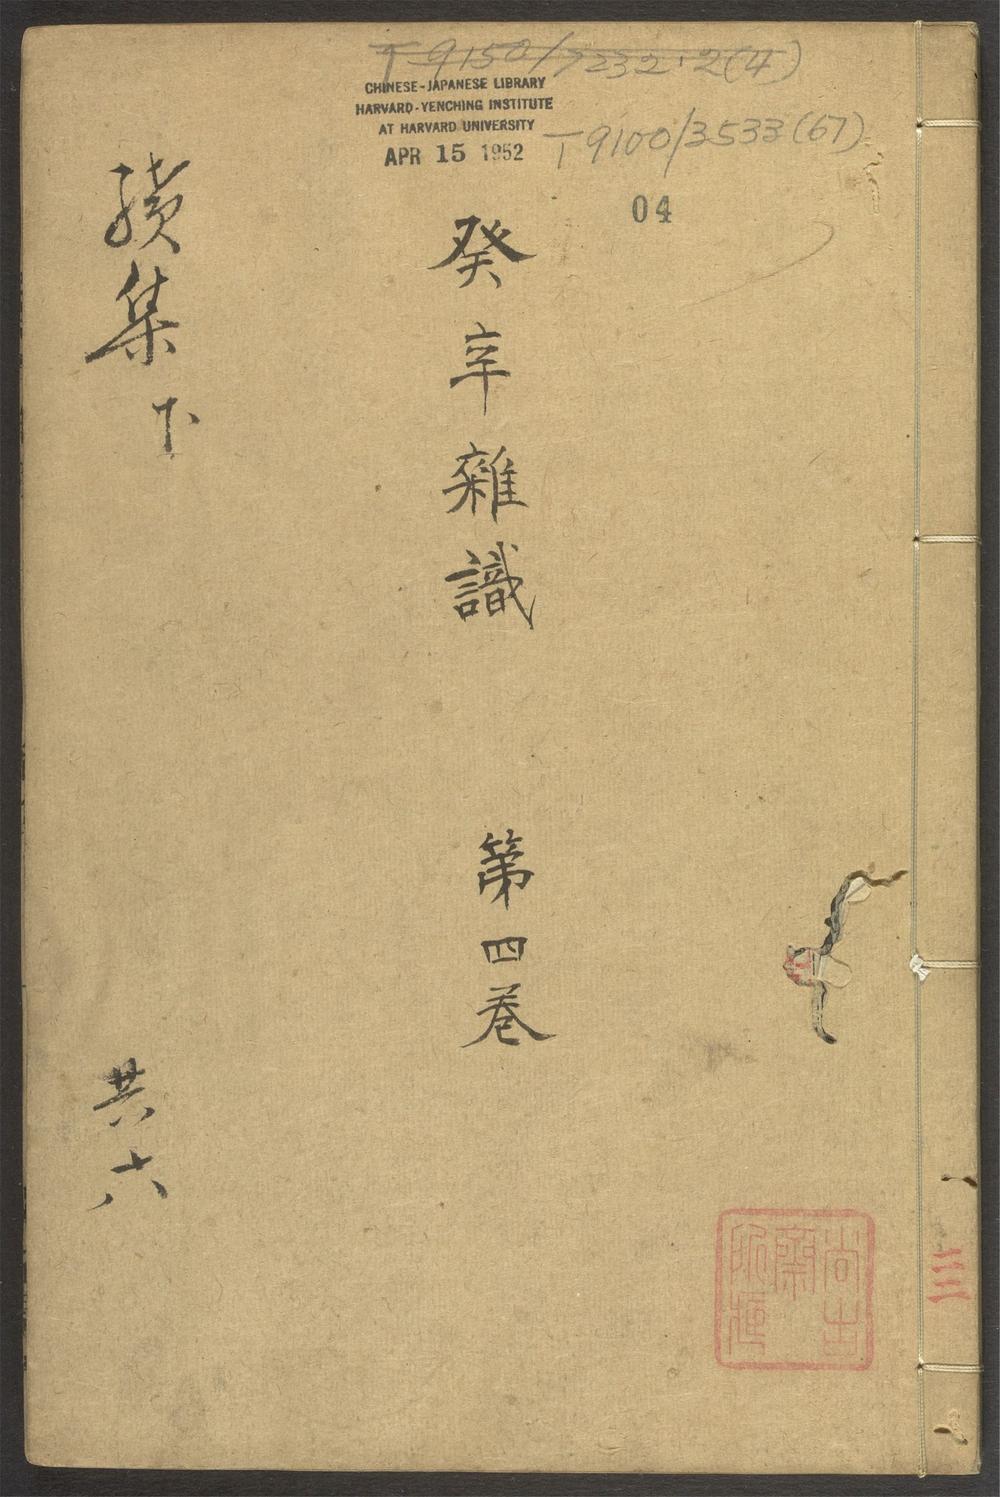 T 9150/7232.2(4)
CHINESE-JAPANESE LIBRARY
HARVARD-YENCHING INSTITUTE
AT HARVARD UNIVERSITY
APR 15 1952
T 9100/3533(67)
04
癸辛雜識 第四卷
續集下
共六
尚古齋所
三三